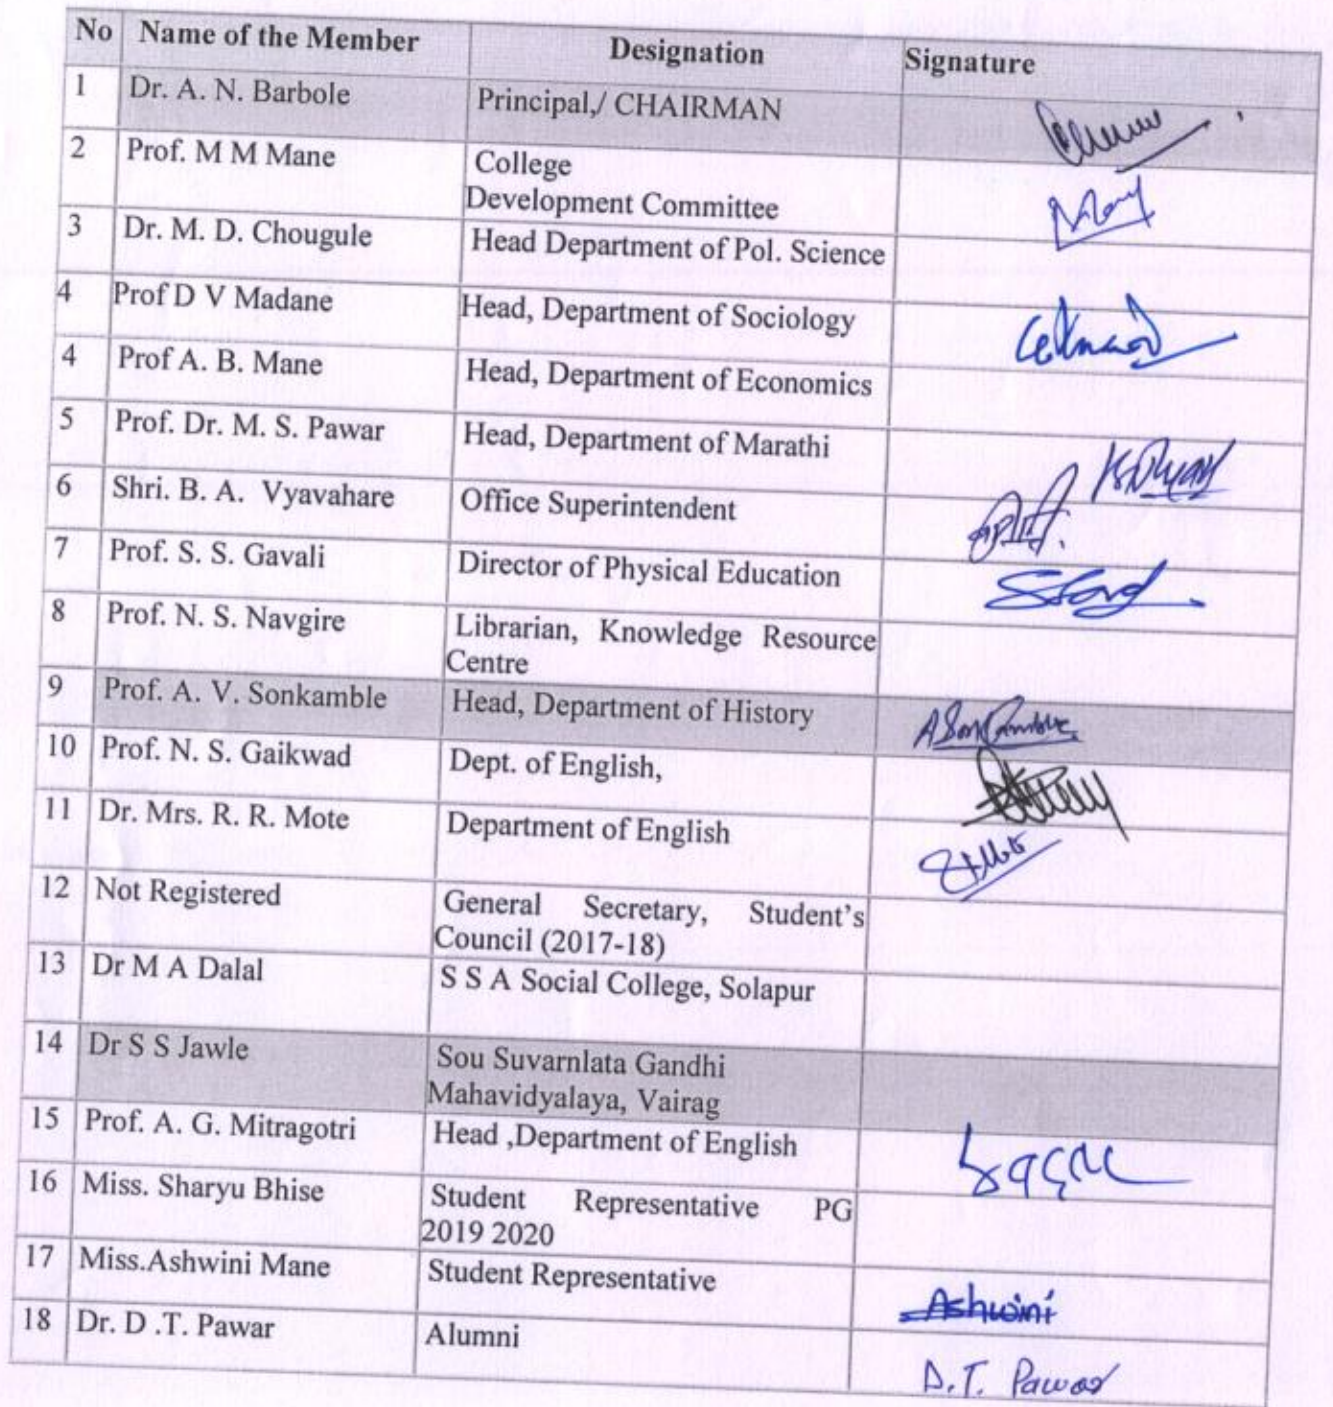 No Name of the Member Designation Signature
1 Dr. A. N. Barbole Principal,/ CHAIRMAN
2 Prof. M M Mane College
Development Committee
3 Dr. M. D. Chougule Head Department of Pol. Science
4 Prof D V Madane Head, Department of Sociology
4 Prof A. B. Mane Head, Department of Economics
5 Prof. Dr. M. S. Pawar Head, Department of Marathi
6 Shri. B. A. Vyavahare Office Superintendent
7 Prof. S. S. Gavali Director of Physical Education
8 Prof. N. S. Navgire Librarian, Knowledge Resource
Centre
9 Prof. A. V. Sonkamble Head, Department of History
10 Prof. N. S. Gaikwad Dept. of English,
11 Dr. Mrs. R. R. Mote Department of English
12 Not Registered General Secretary, Student's
Council (2017-18)
13 Dr M A Dalal S S A Social College, Solapur
14 Dr S S Jawle Sou Suvarnlata Gandhi
Mahavidyalaya, Vairag
15 Prof. A. G. Mitragotri Head ,Department of English
16 Miss. Sharyu Bhise Student Representative PG
2019 2020
17 Miss.Ashwini Mane Student Representative Ashwini
18 Dr. D .T. Pawar Alumni D.T. Pawar